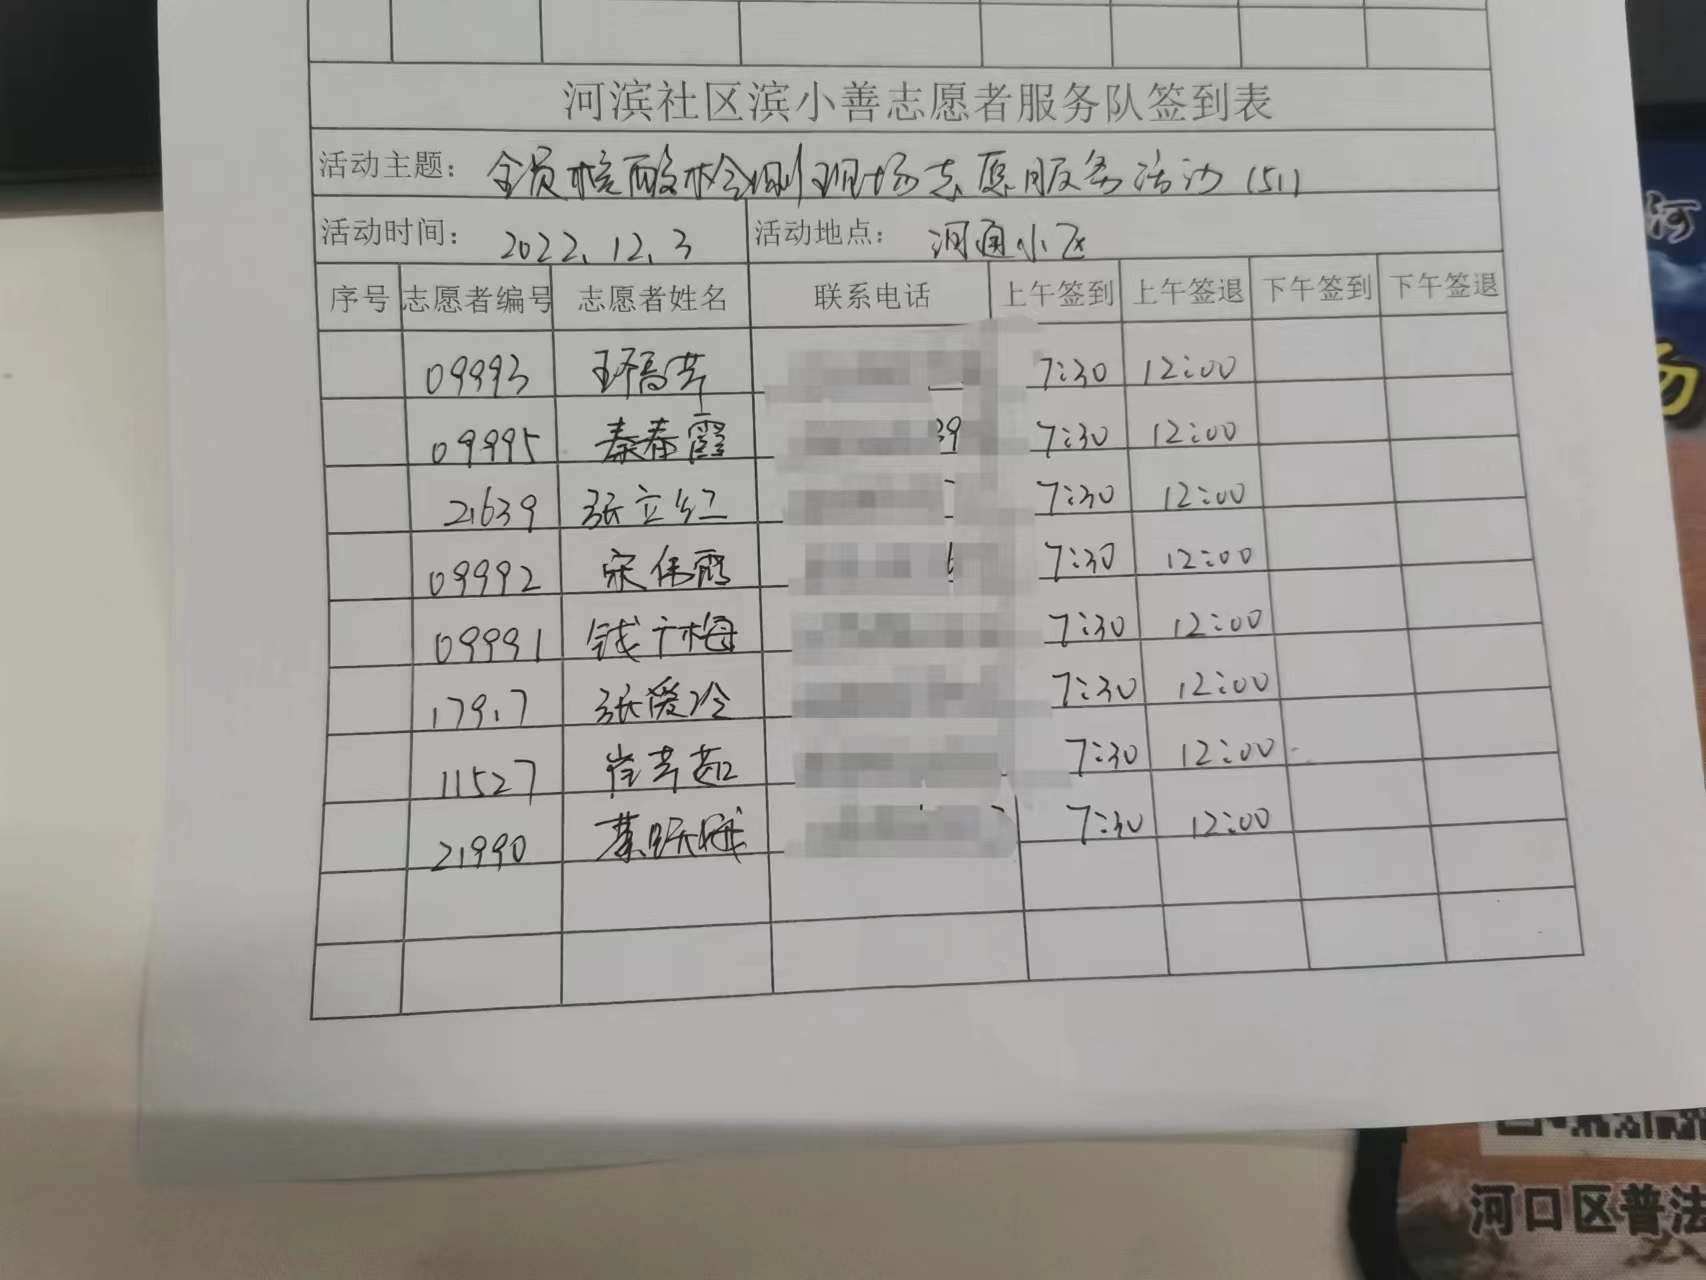 河滨社区滨小善志愿者服务队签到表
活动主题: 全员核酸检测现场志愿服务活动(51)
活动时间: 2022.12.3 活动地点: 河通小区
序号 志愿者编号 志愿者姓名 联系电话 上午签到 上午签退 下午签到 下午签退
09993 7:30 12:00
09995 秦春霞 39 7:30 12:00
21639 张立红 7:30 12:00
09992 宋伟霞 6 7:30 12:00
09991 钱广梅 7:30 12:00
17917 张爱玲 7:30 12:00
11527 崔芳茹 7:30 12:00
21990 7:30 12:00
河
河口区普法